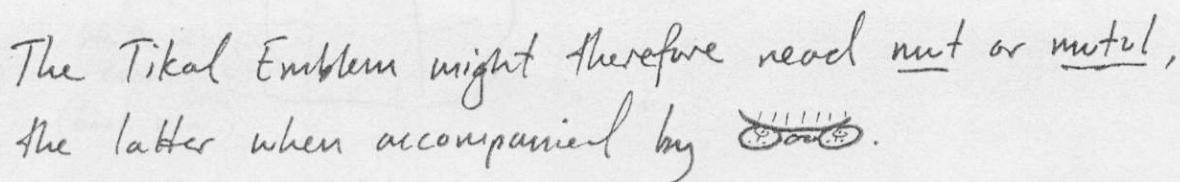 The Tikal Emblem might therefore read mut or mutul,
the latter when accompanied by .